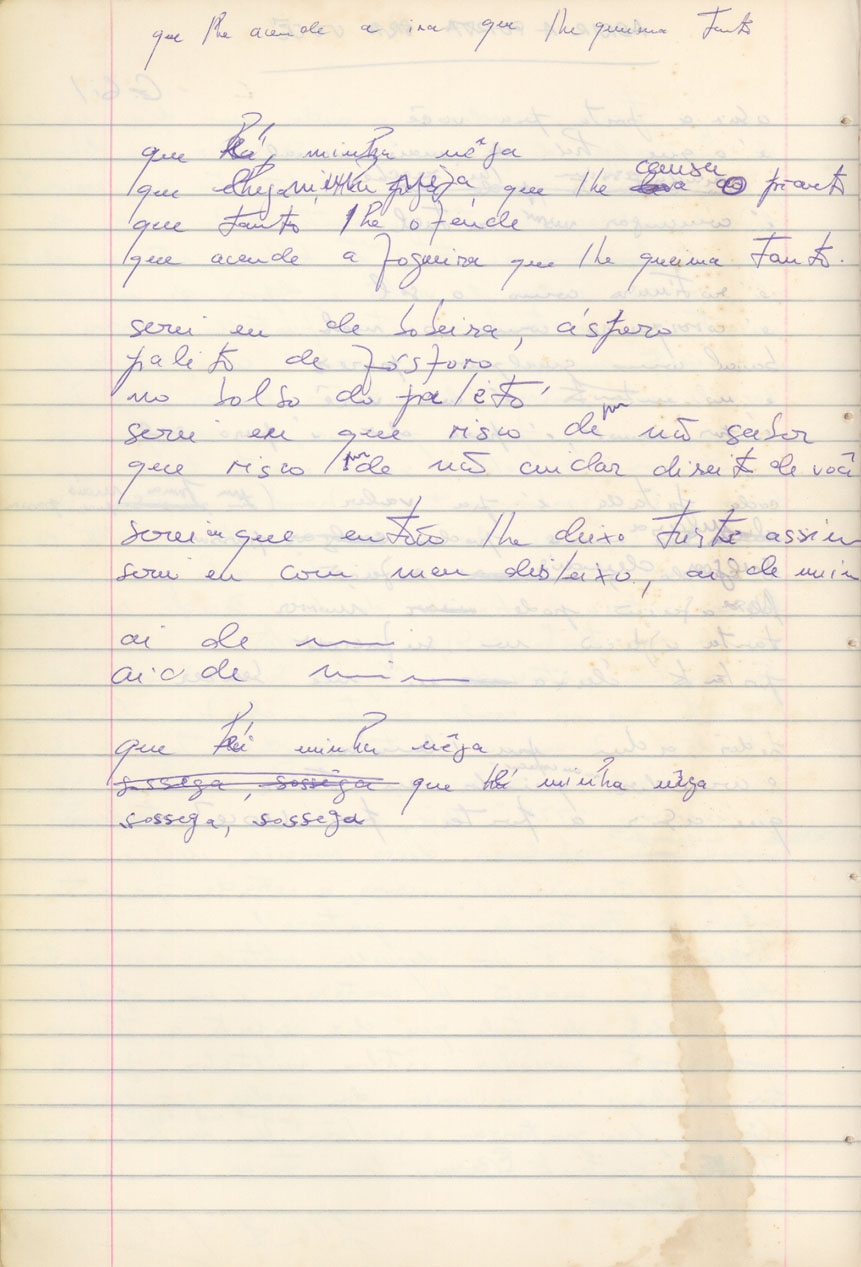 que lhe acende a ira que lhe queima tanto
que há, minha nêga
que que lhe causa pranto
que tanto lhe ofende
que acende a fogueira que lhe queima tanto.
serei eu de bobeira, áspero
palito de fósforo
no bolso do paletó
serei eu que risco de não sabor
que risco de não cuidar direito de você
serei que então lhe deixo triste assim
serei eu com meu desleixo, ai de mim
ai de
ai de mim
que há minha nêga
sossega, sossega que há minha nêga
sossega, sossega